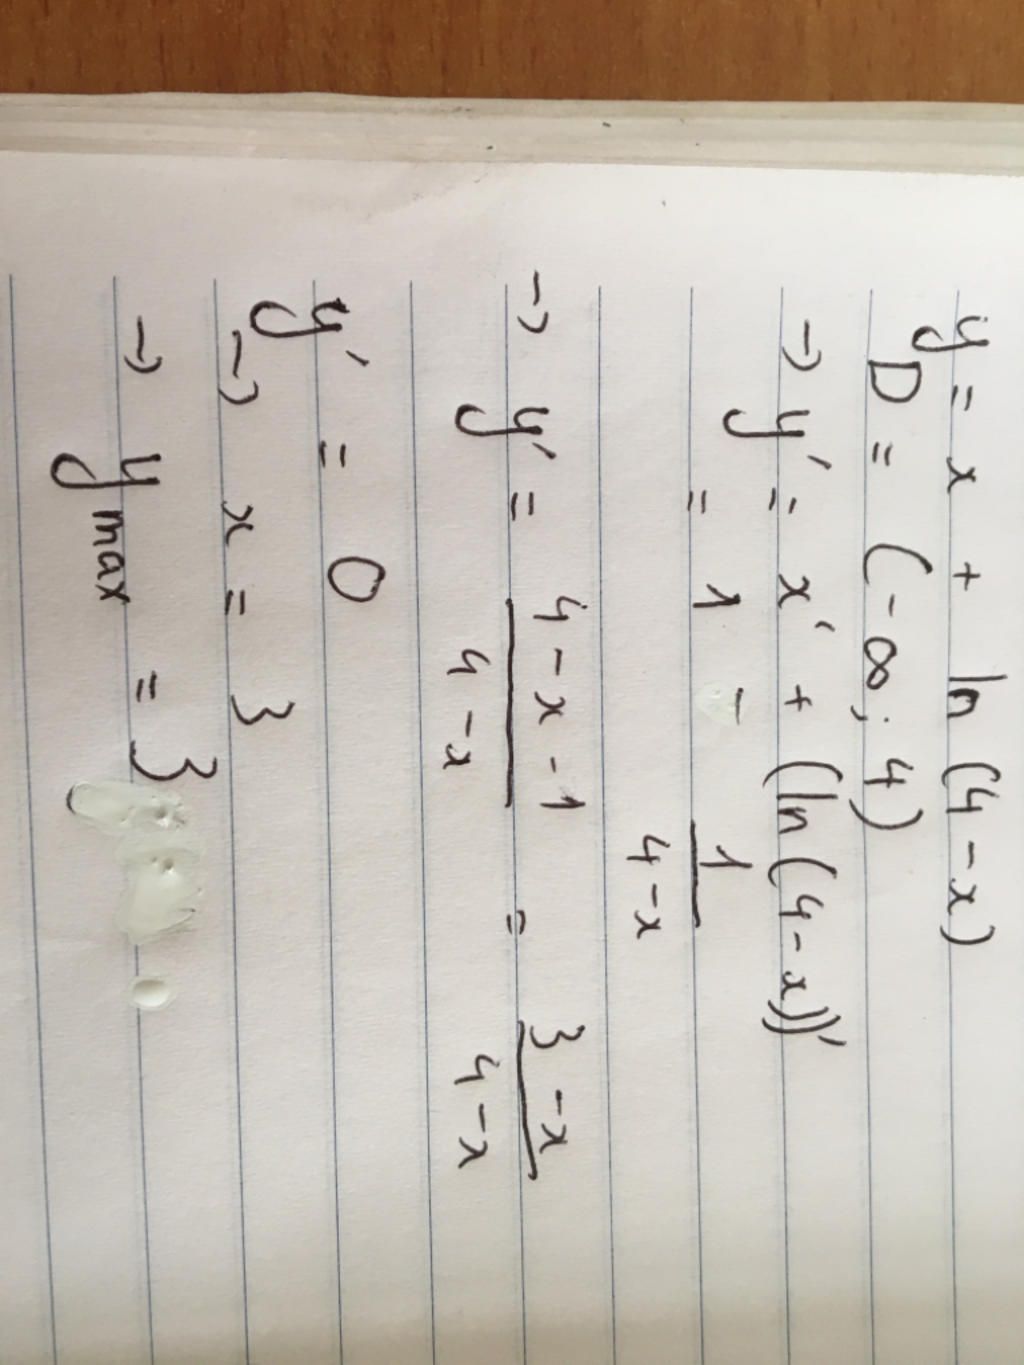 y = x + ln (4 - x)
D = (-∞; 4)
→ y' = x' + (ln (4 - x))'
= 1 - 1/(4 - x)
→ y' = (4 - x - 1)/(4 - x) = (3 - x)/(4 - x)
y' = 0
→ x = 3
→ y max = 3